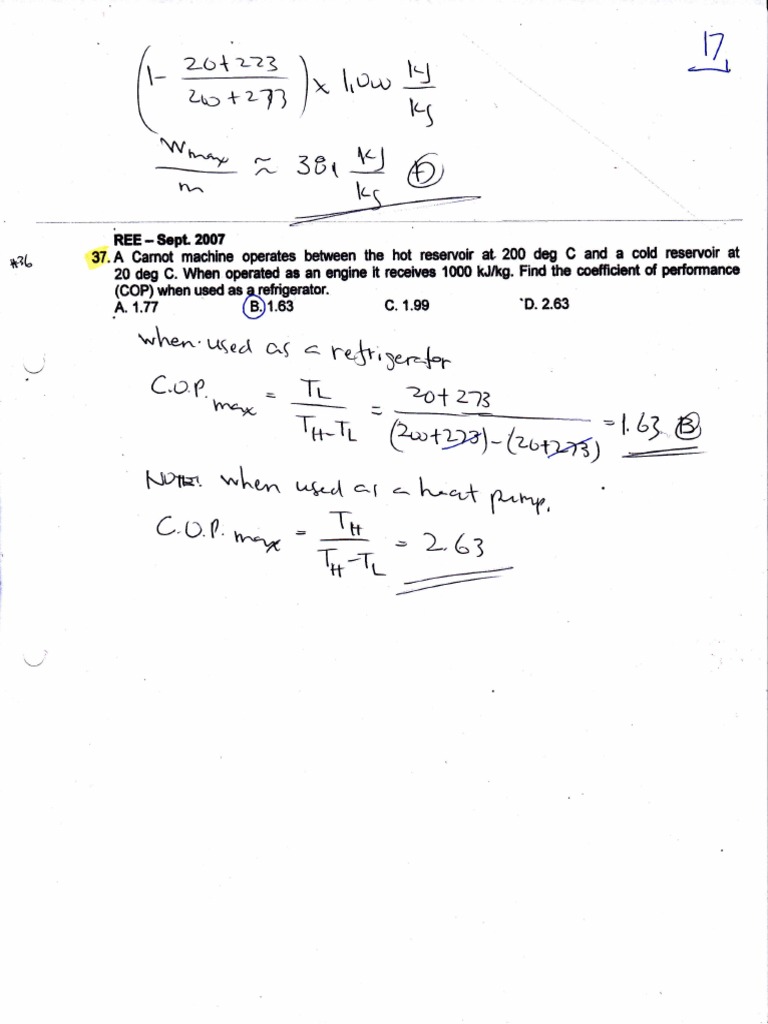 17
(1- 20+273 / 200+273) x 1,000 kJ/kg
Wmax/m ≈ 381 kJ/kg (D)
REE – Sept. 2007
#36
37. A Carnot machine operates between the hot reservoir at 200 deg C and a cold reservoir at
20 deg C. When operated as an engine it receives 1000 kJ/kg. Find the coefficient of performance
(COP) when used as a refrigerator.
A. 1.77 B. 1.63 C. 1.99 D. 2.63
when used as a refrigerator
C.O.P. max = TL / TH-TL = 20+273 / (200+273)-(20+273) = 1.63 (B)
NOTE: when used as a heat pump,
C.O.P. max = TH / TH-TL = 2.63